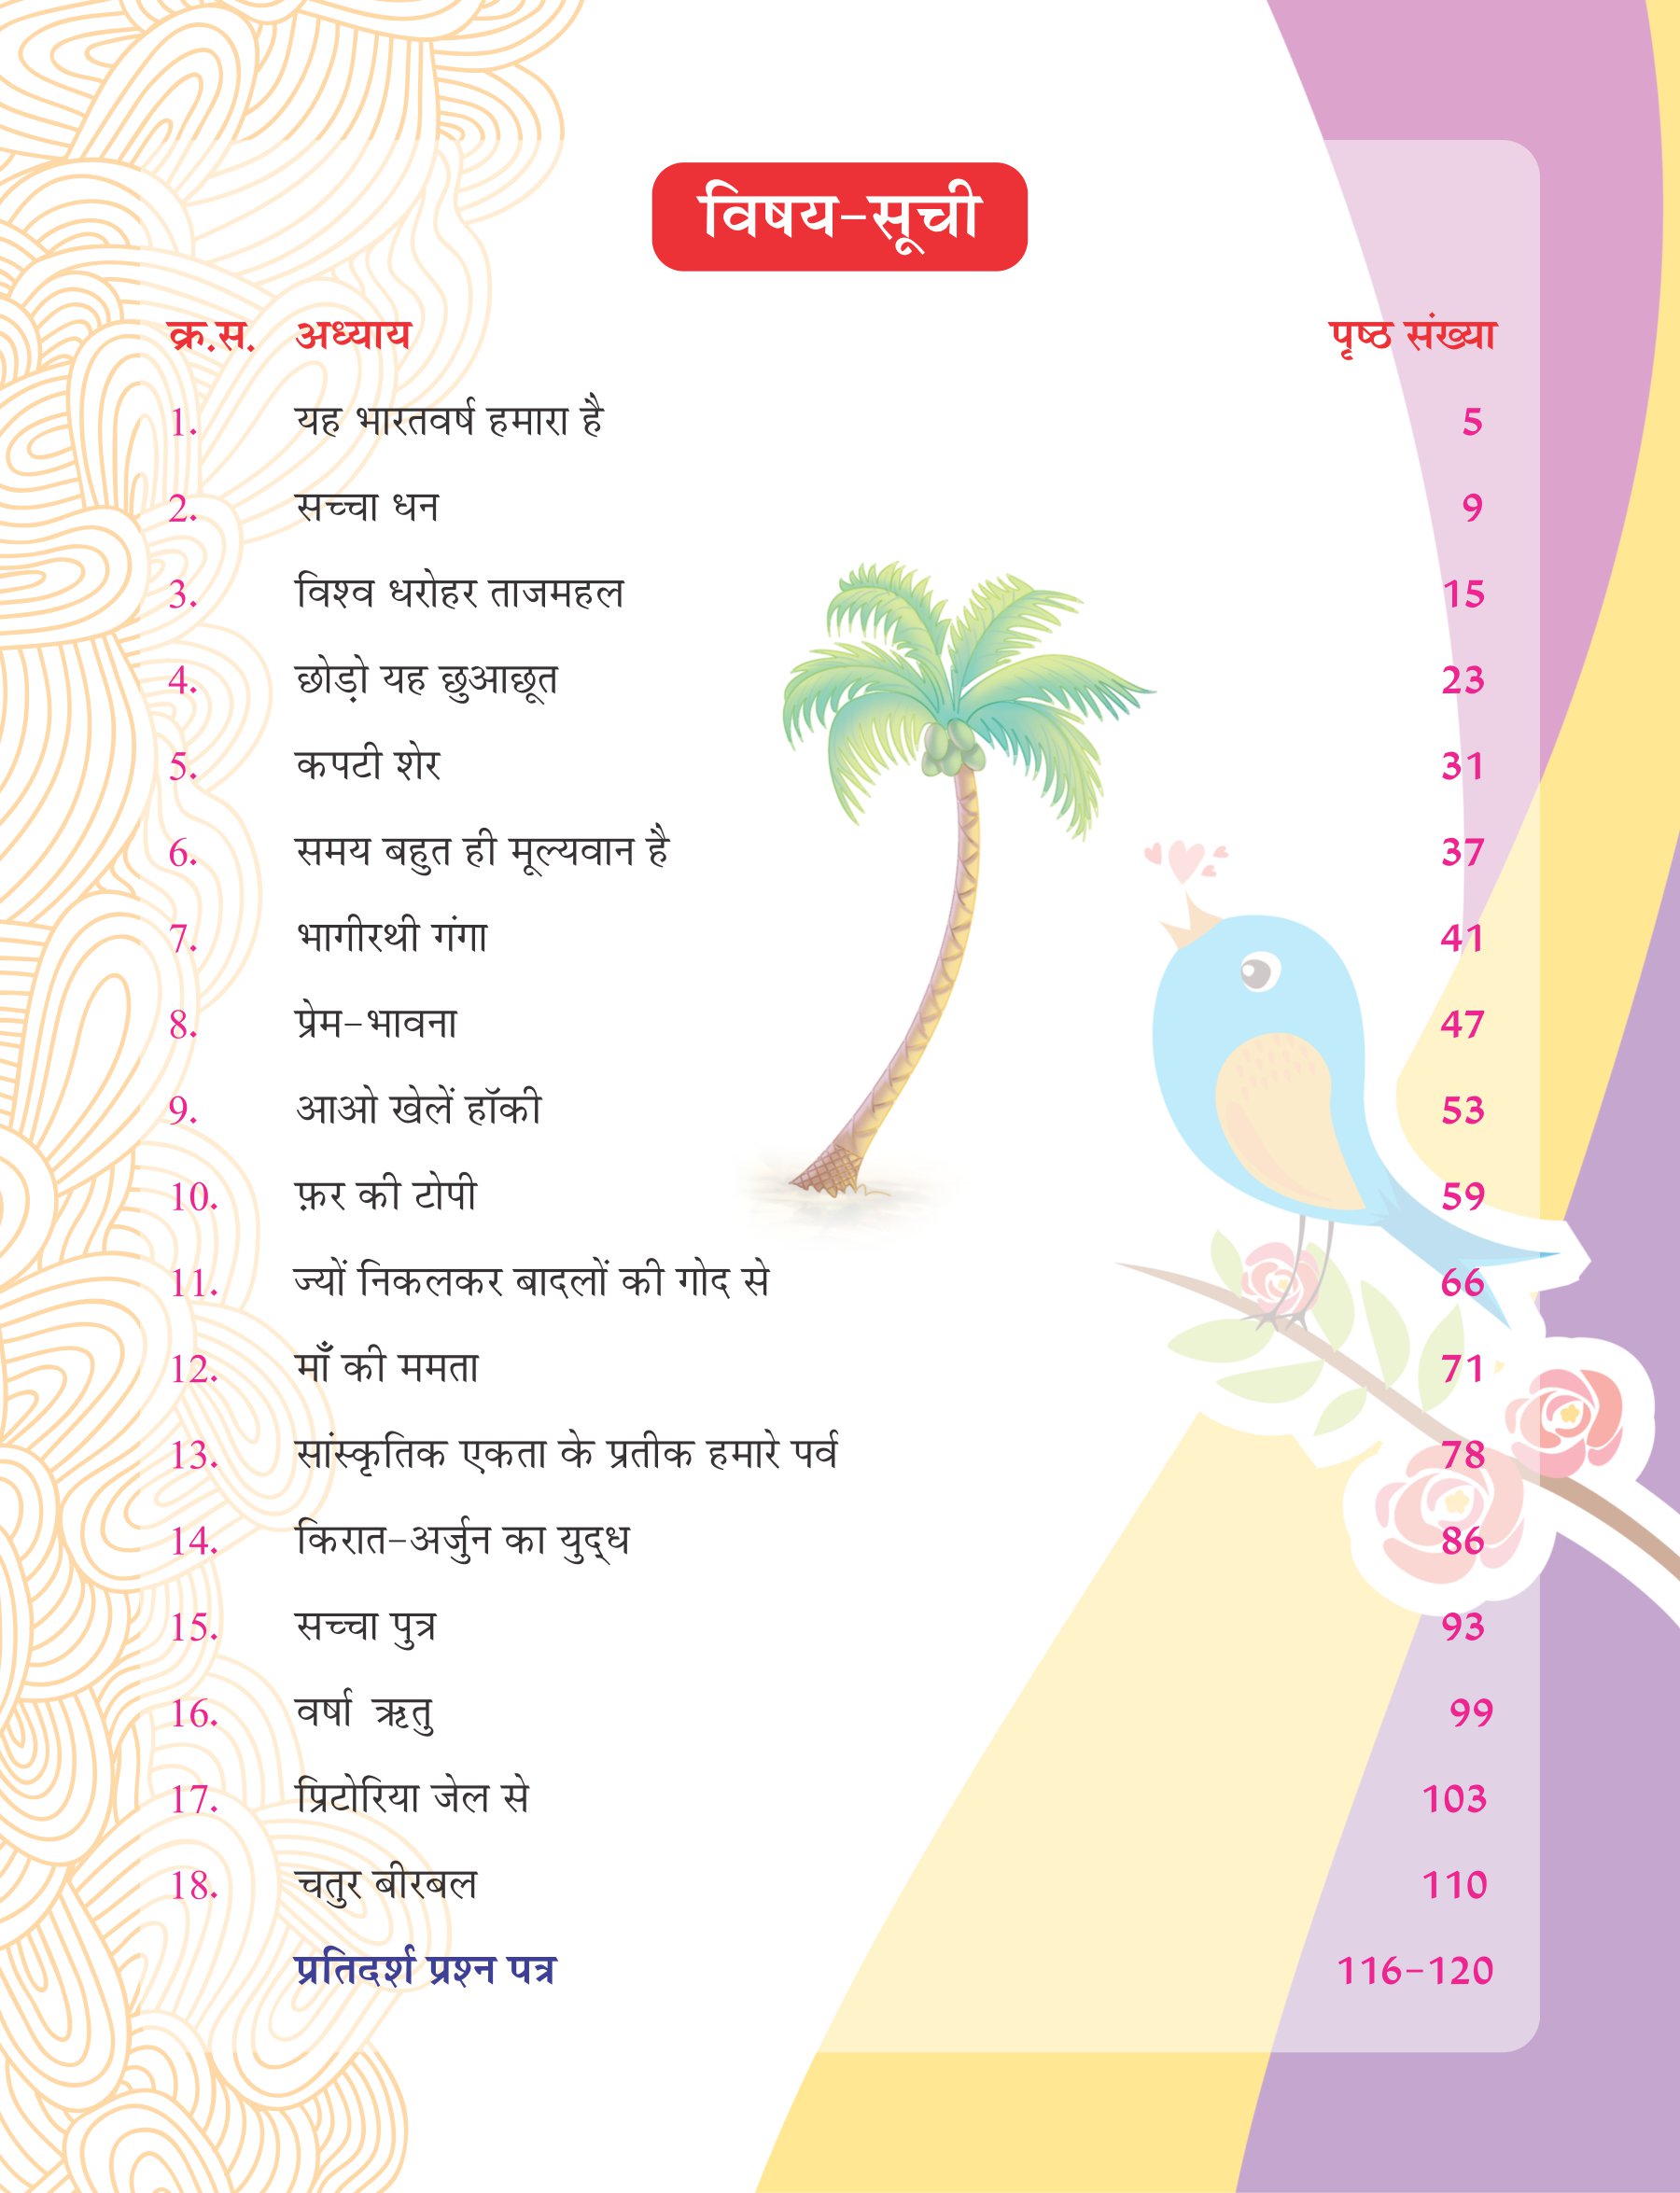 विषय-सूची
क्र.स. अध्याय पृष्ठ संख्या
1. यह भारतवर्ष हमारा है 5
2. सच्चा धन 9
3. विश्व धरोहर ताजमहल 15
4. छोड़ो यह छुआछूत 23
5. कपटी शेर 31
6. समय बहुत ही मूल्यवान है 37
7. भागीरथी गंगा 41
8. प्रेम-भावना 47
9. आओ खेलें हॉकी 53
10. फ़र की टोपी 59
11. ज्यों निकलकर बादलों की गोद से 66
12. माँ की ममता 71
13. सांस्कृतिक एकता के प्रतीक हमारे पर्व 78
14. किरात-अर्जुन का युद्ध 86
15. सच्चा पुत्र 93
16. वर्षा ऋतु 99
17. प्रिटोरिया जेल से 103
18. चतुर बीरबल 110
प्रतिदर्श प्रश्न पत्र 116-120